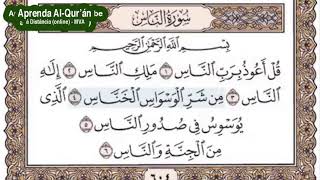 A Aprenda Al-Qur'án be
Á Distância (online) - MVA
سُورَةُ النَّاسِ
بِسْمِ اللَّهِ الرَّحْمَٰنِ الرَّحِيمِ
قُلْ أَعُوذُ بِرَبِّ النَّاسِ ١ مَلِكِ النَّاسِ ٢ إِلَٰهِ
النَّاسِ ٣ مِن شَرِّ الْوَسْوَاسِ الْخَنَّاسِ ٤ الَّذِي
يُوَسْوِسُ فِي صُدُورِ النَّاسِ ٥
مِنَ الْجِنَّةِ وَالنَّاسِ ٦
٦٠٤